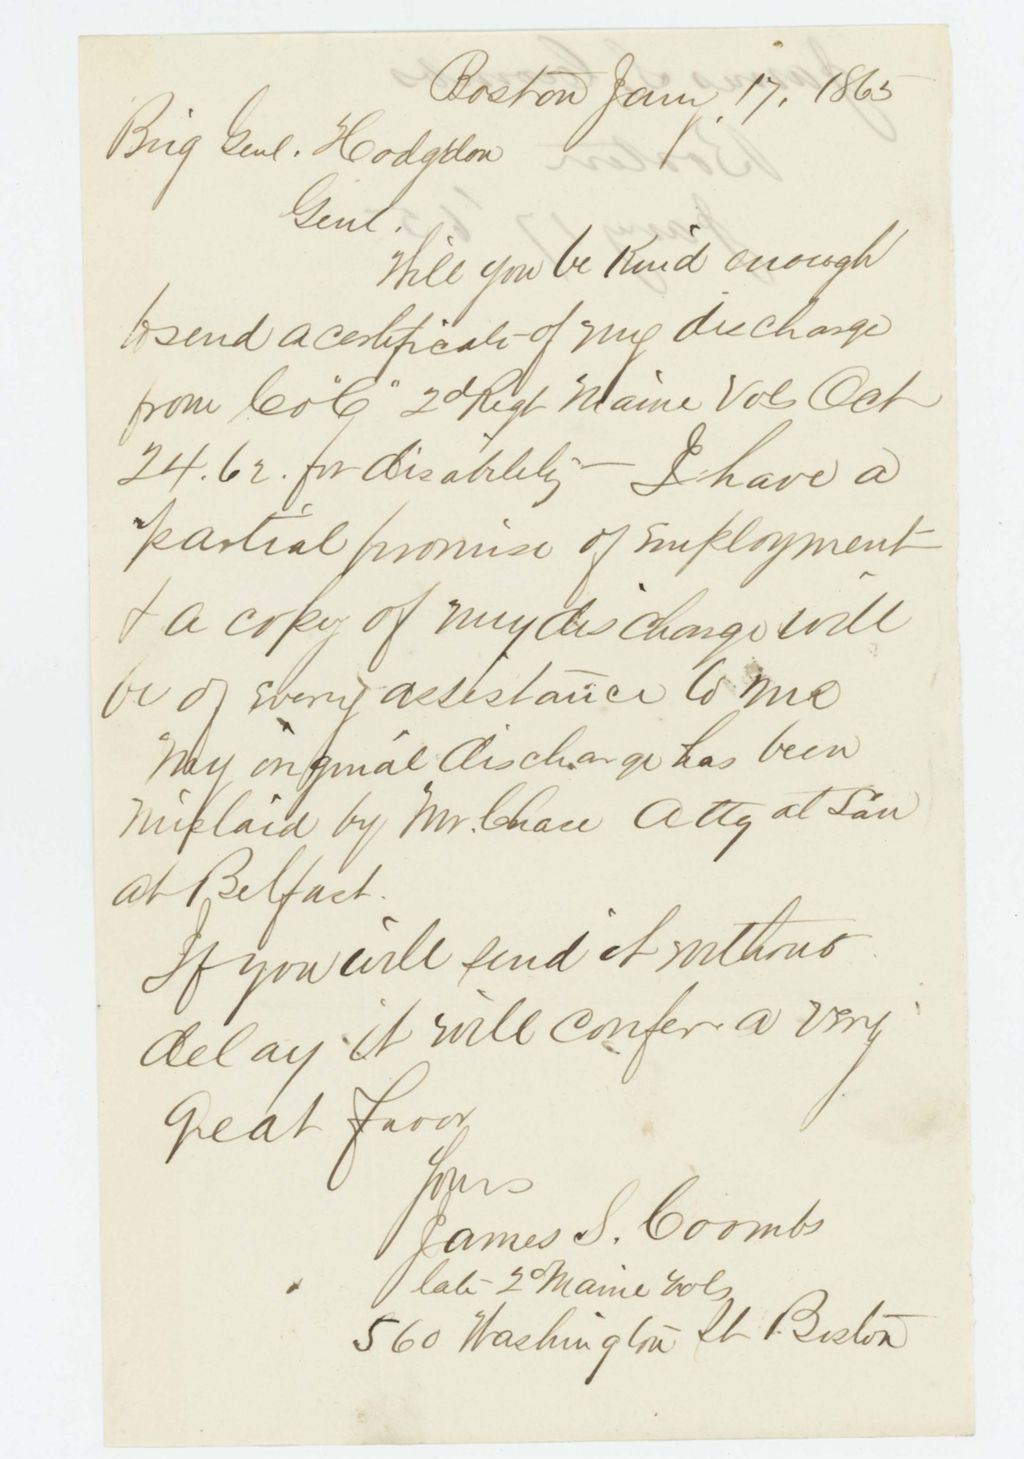 Boston Jany 17, 1865
Brig Genl. Hodgdon
Genl.
Will you be kind enough
to send a certificate of my discharge
from Co "C" 2d Regt Maine Vols Oct
24.62. for disability - I have a
partial promise of employment
& a copy of my discharge will
be of every assistance to me
My original discharge has been
mislaid by Mr. Chase Atty at Law
at Belfast.
If you will send it without
delay it will confer a very
great favor
Yours
James S. Coombs
late 2d Maine Vols
560 Washington St Boston